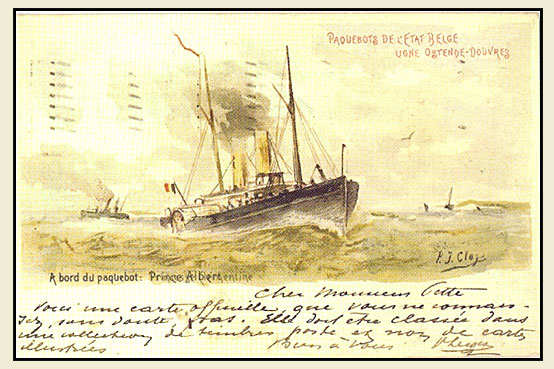 PAQUEBOTS DE L'ETAT BELGE
LIGNE OSTENDE-DOUVRES
P. J. Clays
A bord du paquebot: Prince Albert
Cher Monsieur
Voici une carte officielle, que vous ne connais-
sez, sans doute, pas. Elle doit être classée dans
une collection de timbres poste et non de cartes
illustrées Bien à Vous